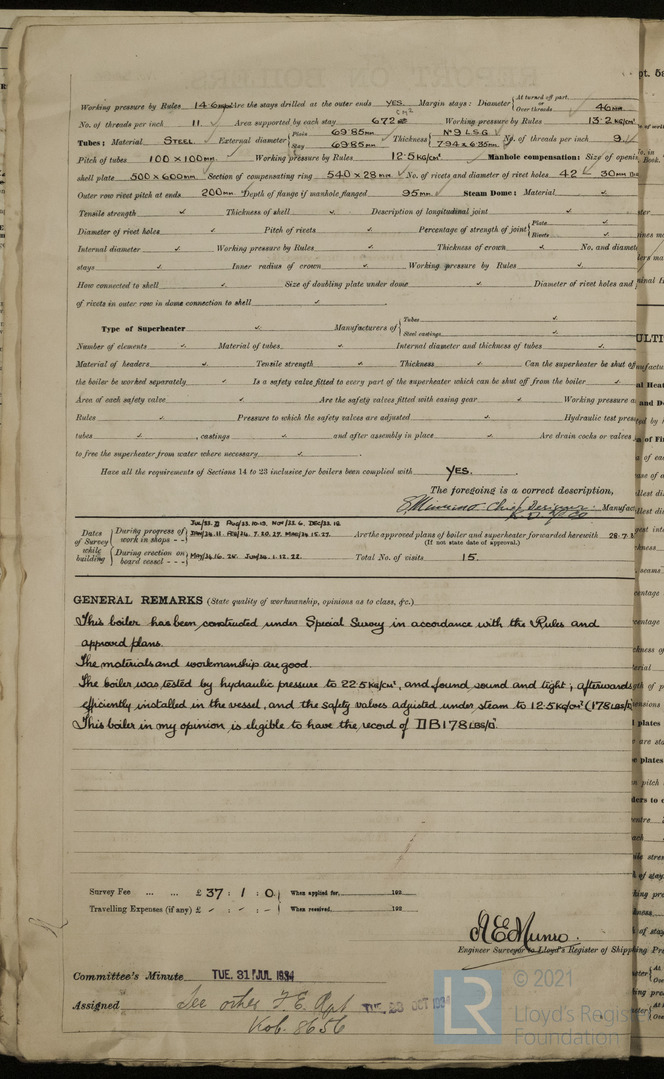 Working pressure by Rules 14.6 Are the stays drilled at the outer ends YES. Margin stays: Diameter { At turned off part, or Over threads 46 MM.
No. of threads per inch 11. Area supported by each stay 672 CM² Working pressure by Rules 13.2 KG/CM²
Tubes: Material STEEL. External diameter { Plain 69.85 MM Stay 69.85 MM Thickness { Nº 9 L.S.G 7.94 & 6.35 MM. No. of threads per inch 9.
Pitch of tubes 100 X 100 MM. Working pressure by Rules 12.5 KG/CM² Manhole compensation: Size of openi
shell plate 500 X 600 MM. Section of compensating ring 540 X 28 MM No. of rivets and diameter of rivet holes 42 30 MM
Outer row rivet pitch at ends 200 MM. Depth of flange if manhole flanged 95 MM. Steam Dome: Material
Tensile strength Thickness of shell Description of longitudinal joint
Diameter of rivet holes Pitch of rivets Percentage of strength of joint { Plate Rivets
Internal diameter Working pressure by Rules Thickness of crown No. and diamet
stays Inner radius of crown Working pressure by Rules
How connected to shell Size of doubling plate under dome Diameter of rivet holes and
of rivets in outer row in dome connection to shell
Type of Superheater Manufacturers of { Tubes Steel castings
Number of elements Material of tubes Internal diameter and thickness of tubes
Material of headers Tensile strength Thickness Can the superheater be shut off
the boiler be worked separately Is a safety valve fitted to every part of the superheater which can be shut off from the boiler
Area of each safety valve Are the safety valves fitted with easing gear Working pressure a
Rules Pressure to which the safety valves are adjusted Hydraulic test pres
tubes , castings and after assembly in place Are drain cocks or valves
to free the superheater from water where necessary
Have all the requirements of Sections 14 to 23 inclusive for boilers been complied with YES.
The foregoing is a correct description,
Chief Designer. Manufac
Dates of Survey while building { During progress of work in shops - - } Jul/33. Aug/33. 10.19. Nov/33. 6. Dec/33. 12. Jan/34. 11. Feb/34. 7. 20. 27. Mar/34. 15. 27. Are the approved plans of boiler and superheater forwarded herewith 28.7.3
(If not state date of approval.)
{ During erection on board vessel - - - } May/34. 16. 25. Jun/34. 1. 12. 22. Total No. of visits 15.
GENERAL REMARKS (State quality of workmanship, opinions as to class, &c.)
This boiler has been constructed under Special Survey in accordance with the Rules and
approved plans.
The materials and workmanship are good.
The boiler was tested by hydraulic pressure to 22.5 KG/CM², and found sound and tight; afterwards
efficiently installed in the vessel, and the safety valves adjusted under steam to 12.5 KG/CM² (178 LBS/
This boiler in my opinion is eligible to have the record of DB 178 LBS/□".
Survey Fee ... ... £ 37 : 1 : 0 } When applied for, 192
Travelling Expenses (if any) £ - : - : - } When received, 192
A E Munro.
Engineer Surveyor to Lloyd's Register of Shipping
Committee's Minute TUE. 31 JUL 1934
Assigned See other F.E. Rpt TUE. 23 OCT 1934
Kob. 8656
LR © 2021
Lloyd's Regis
Foundation